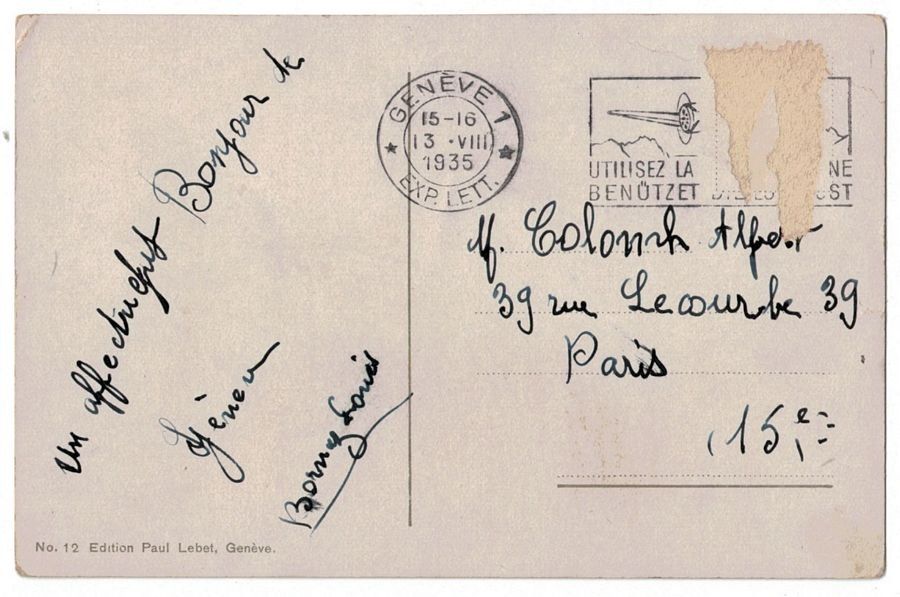 Un affectueux Bonjour de
Genève
Bornoz Louis
GENÈVE 1
15-16
13 · VIII
1935
EXP. LETT.
UTILISEZ LA NE
BENÜTZET ST
M. Colomb Alfred
39 rue Lecourbe 39
Paris
(15e)
No. 12 Edition Paul Lebet, Genève.